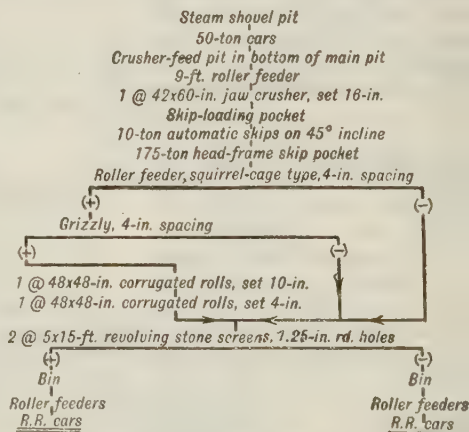 Steam shovel pit
50-ton cars
Crusher-feed pit in bottom of main pit
9-ft. roller feeder
1 @ 42x60-in. jaw crusher, set 16-in.
Skip-loading pocket
10-ton automatic skips on 45° incline
175-ton head-frame skip pocket
Roller feeder, squirrel-cage type, 4-in. spacing
(+) (-)
Grizzly, 4-in. spacing
(+) (-)
1 @ 48x48-in. corrugated rolls, set 10-in.
1 @ 48x48-in. corrugated rolls, set 4-in.
2 @ 5x15-ft. revolving stone screens, 1.25-in. rd. holes
(+) (-)
Bin Bin
Roller feeders Roller feeders
R.R. cars R.R. cars